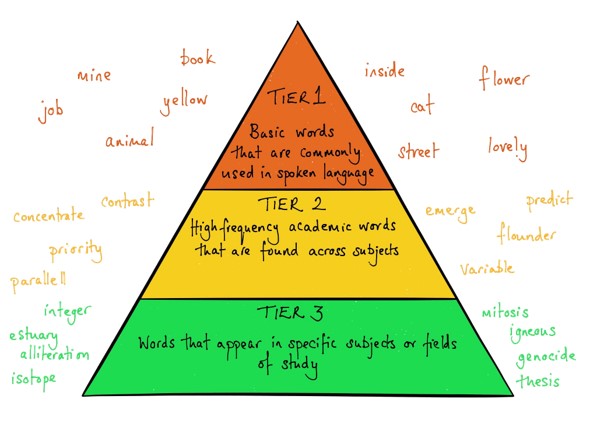 mine
book
job
yellow
animal
inside
flower
cat
street
lovely
TIER 1
Basic words
that are commonly
used in spoken language
concentrate
contrast
priority
parallell
emerge
predict
flounder
variable
TIER 2
High-frequency academic words
that are found across subjects
integer
estuary
alliteration
isotope
mitosis
igneous
genocide
thesis
TIER 3
Words that appear in specific subjects or fields
of study